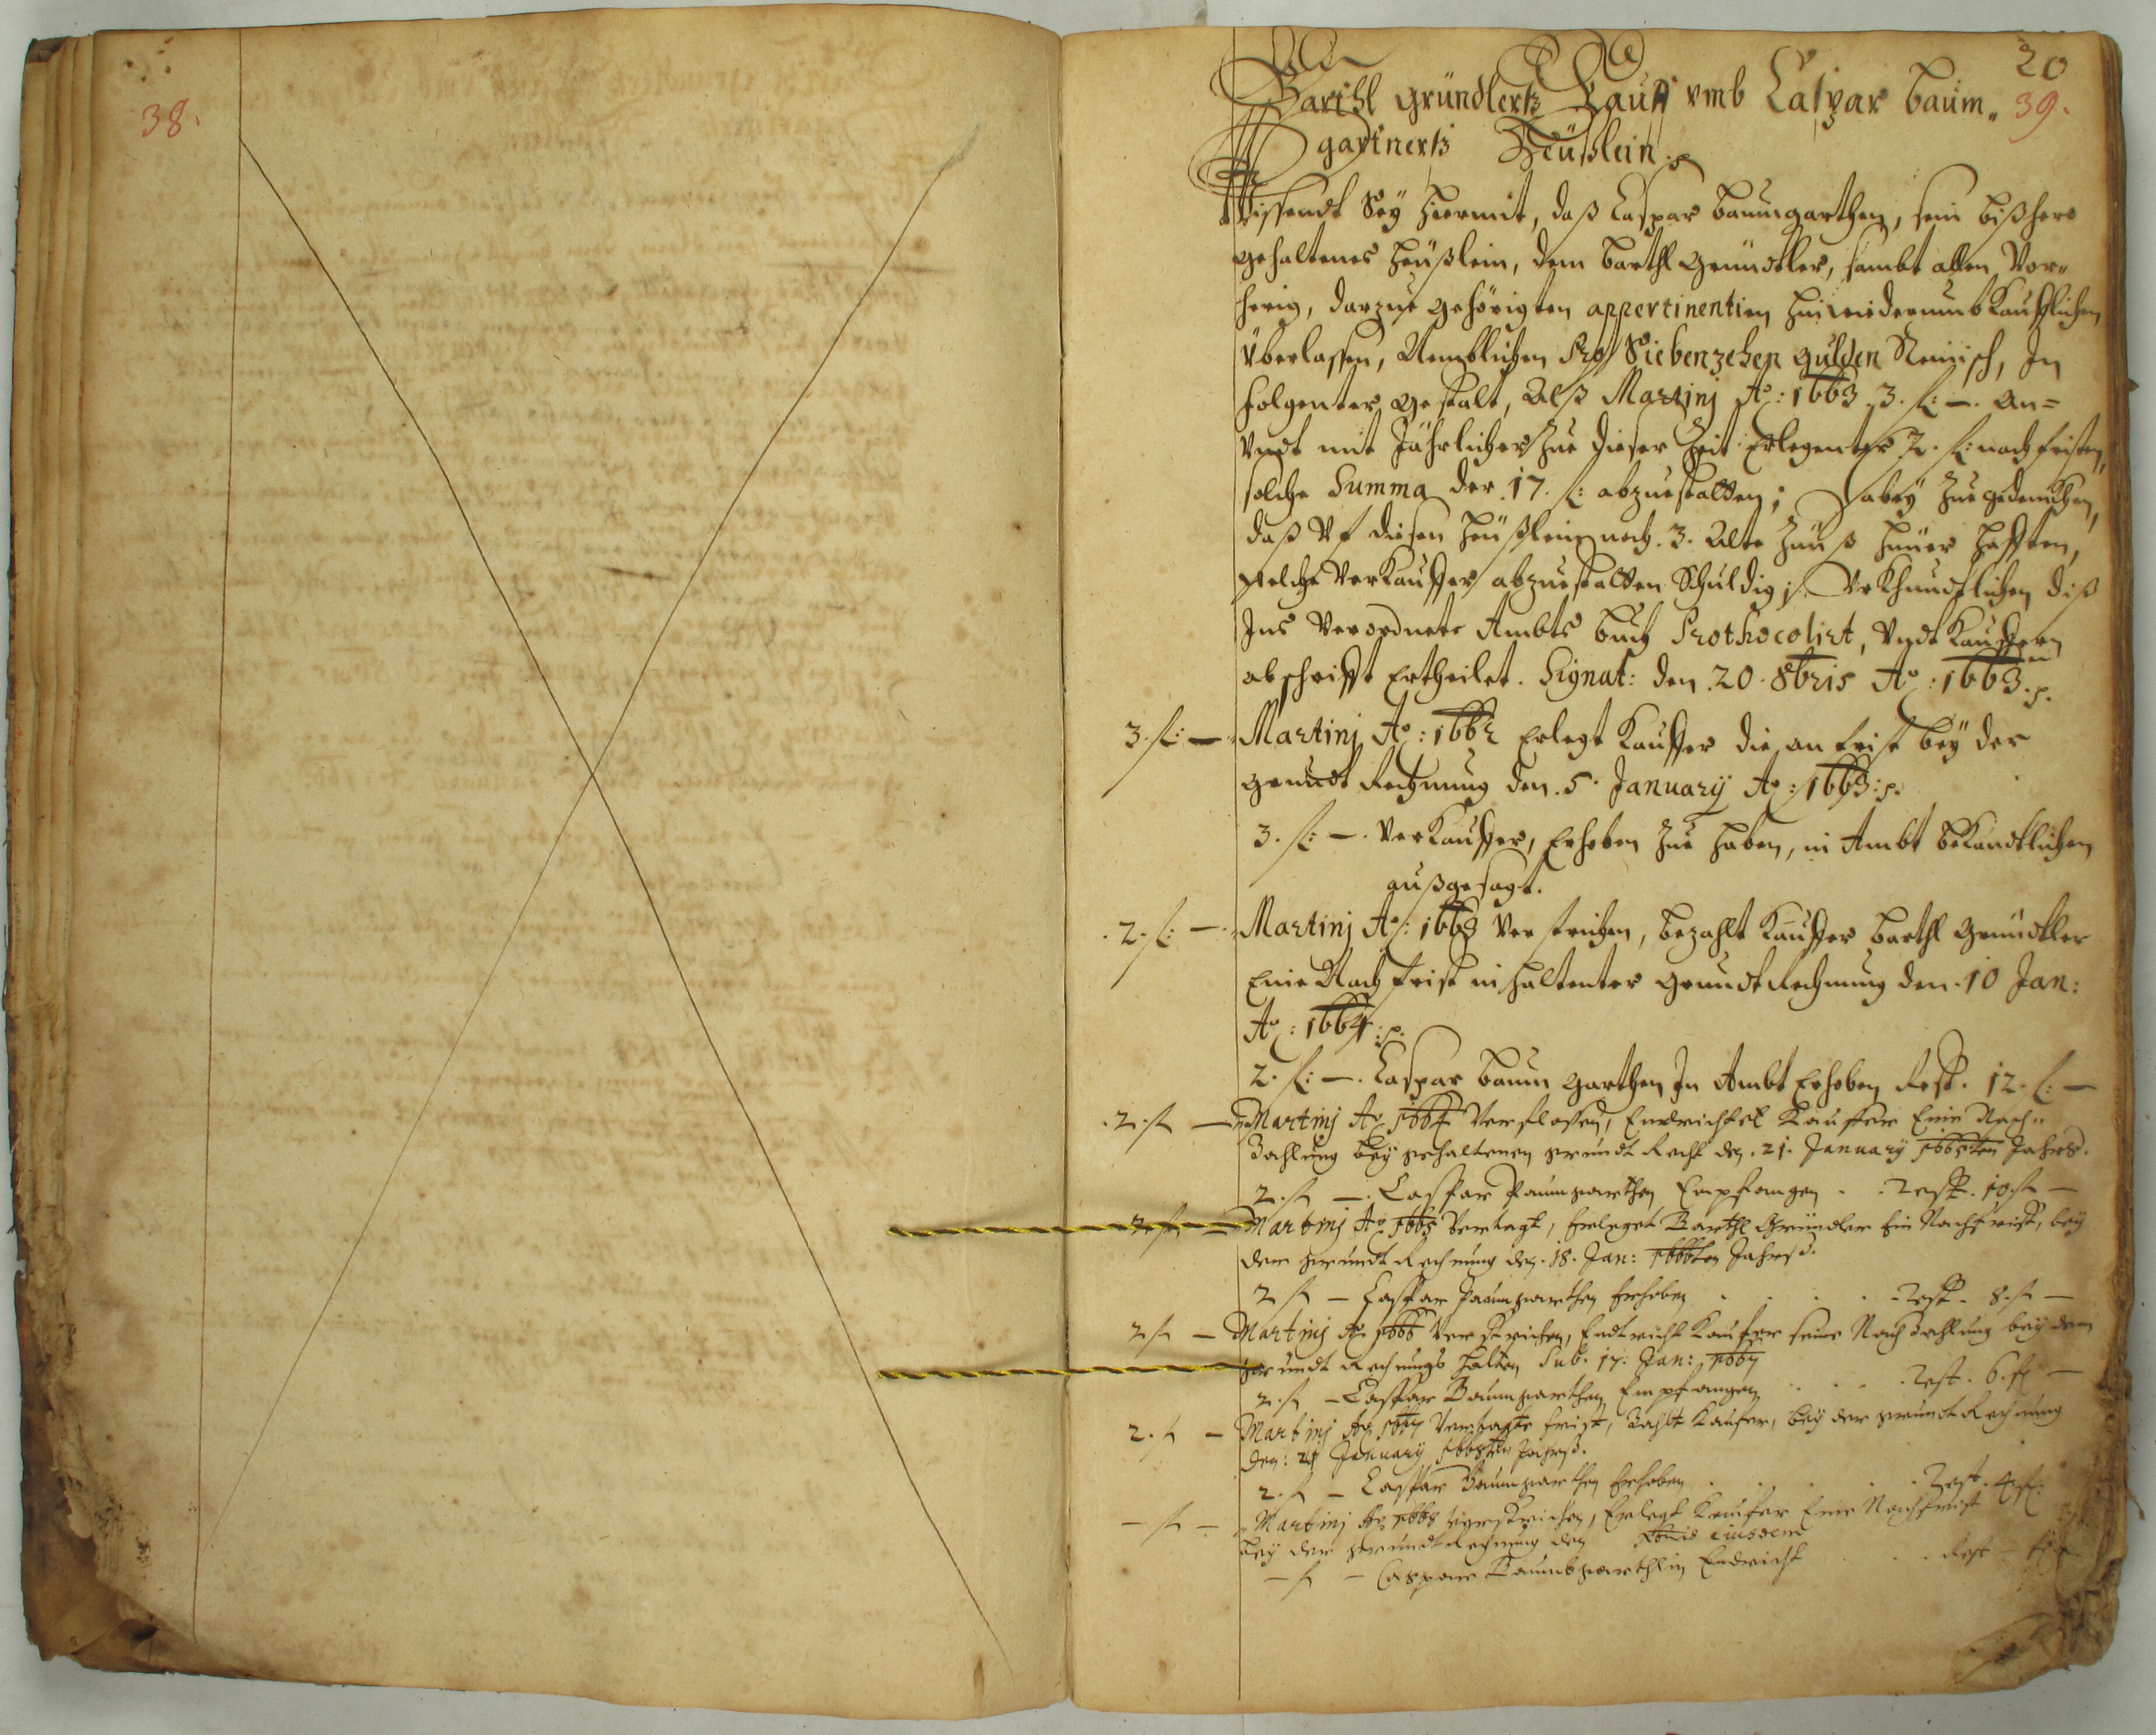 38.
20
39.
Barthl Gründlerß Kauff vmb Caspar Baum„
gartnerß Heüßlein.
Wissendt Sey hiermit, daß Caspar Baumgarthen, sein bißhero
gehaltenes Heüßlein, dem Barthl Gründtler, sambt allen Vor„
herig, darzue gehörigten appertinentien hinwiderumb Kaufflichen
Überlassen, Nemblichen Pro Siebenzehen gulden Reinisch, In
folgenter gestalt, Alß Martinj Aº: 1663 3. fl: –. An=
Vndt mit Jährlicher Zue dieser Zeit Erlegenter 2. fl: nachfristen,
solche Summa der 17. fl: abzuestatten; Dabey Zue gedenckhen,
daß Vf diesen Heüßlein noch. 3. Alte Hüner hafften,
welche Verkauffer abzuestatten Schuldig; Vrkhundtlichen diß
Ins Verordnete Ambts Buch Prothocolirt, Vndt Kauffern
abschrifft Ertheilet. Signat: den. 20. 8bris Aº: 1663.
3. fl: –. Martinj Aº: 1662 Erlegt Kauffer die an frist bey der
grundt Rechnung den. 5. January Aº: 1663:
3. fl: –. Verkauffer, Erhoben Zue haben, in Ambt bekandtlichen
außgesagt.
2. fl: –. Martinj Aº: 1663 Verstrichen, bezahlt Kauffer Barthl Gründtler
Eine Nachfrist in haltenter grundt Rechnung den. 10 Jan:
Aº: 1664:
2. fl: –. Caspar Baumgarthen In Ambt Erhoben Rest. 12. fl: –
2. fl – Martinj Aº 1664 Verflossen, Endrichtet Kauffer Eine Nach„
Zahlung bey gehaltenen grundt Recht den. 21. January 1665ten Jahres.
2. fl –. Caspar Paumgarthen Empfangen . . Rest. 10. fl –
2 fl – Martinj Aº 1665 Vertagt, Erleget Barthl Gründler Ein Nachfrist, bey
der grundt Rechnung den. 18. Jan: 1666ten Jahres.
2 fl – Caspar Paumgarthen Erhoben . . . . Rest. 8. fl –
2 fl – Martinj Aº 1666 Verstrichen, Endtricht Kaufer seine Nach Zahlung bey dem
grundt Rechnungs halten Sub. 17. Jan: 1667
2. fl – Caspar Baumgarthen Empfangen . . . . Rest. 6. fl –
2. fl – Martinj Aº 1667 Vertagte frist, Zahlt Kaufer, bey der grundt Rechnung
den: January 1668ten Jahres.
2. fl – Caspar Baumgarthen Erhoben . . . . Rest. 4 fl.
– fl – Martinj Aº 1668 Verstrichen, Erlegt Kaufer Eine Nachfrist
bey der grundt Rechnung den eiusdem
– fl – Caspare Baumbgarthlin Endricht . . . Rest –